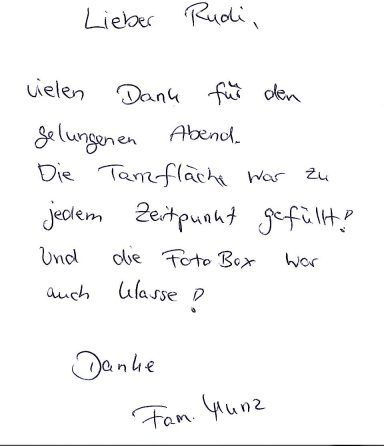 Lieber Rudi,
vielen Dank für den
gelungenen Abend.
Die Tanzfläche war zu
jedem Zeitpunkt gefüllt!
Und die FotoBox war
auch Klasse!
Danke
Fam. Kunz